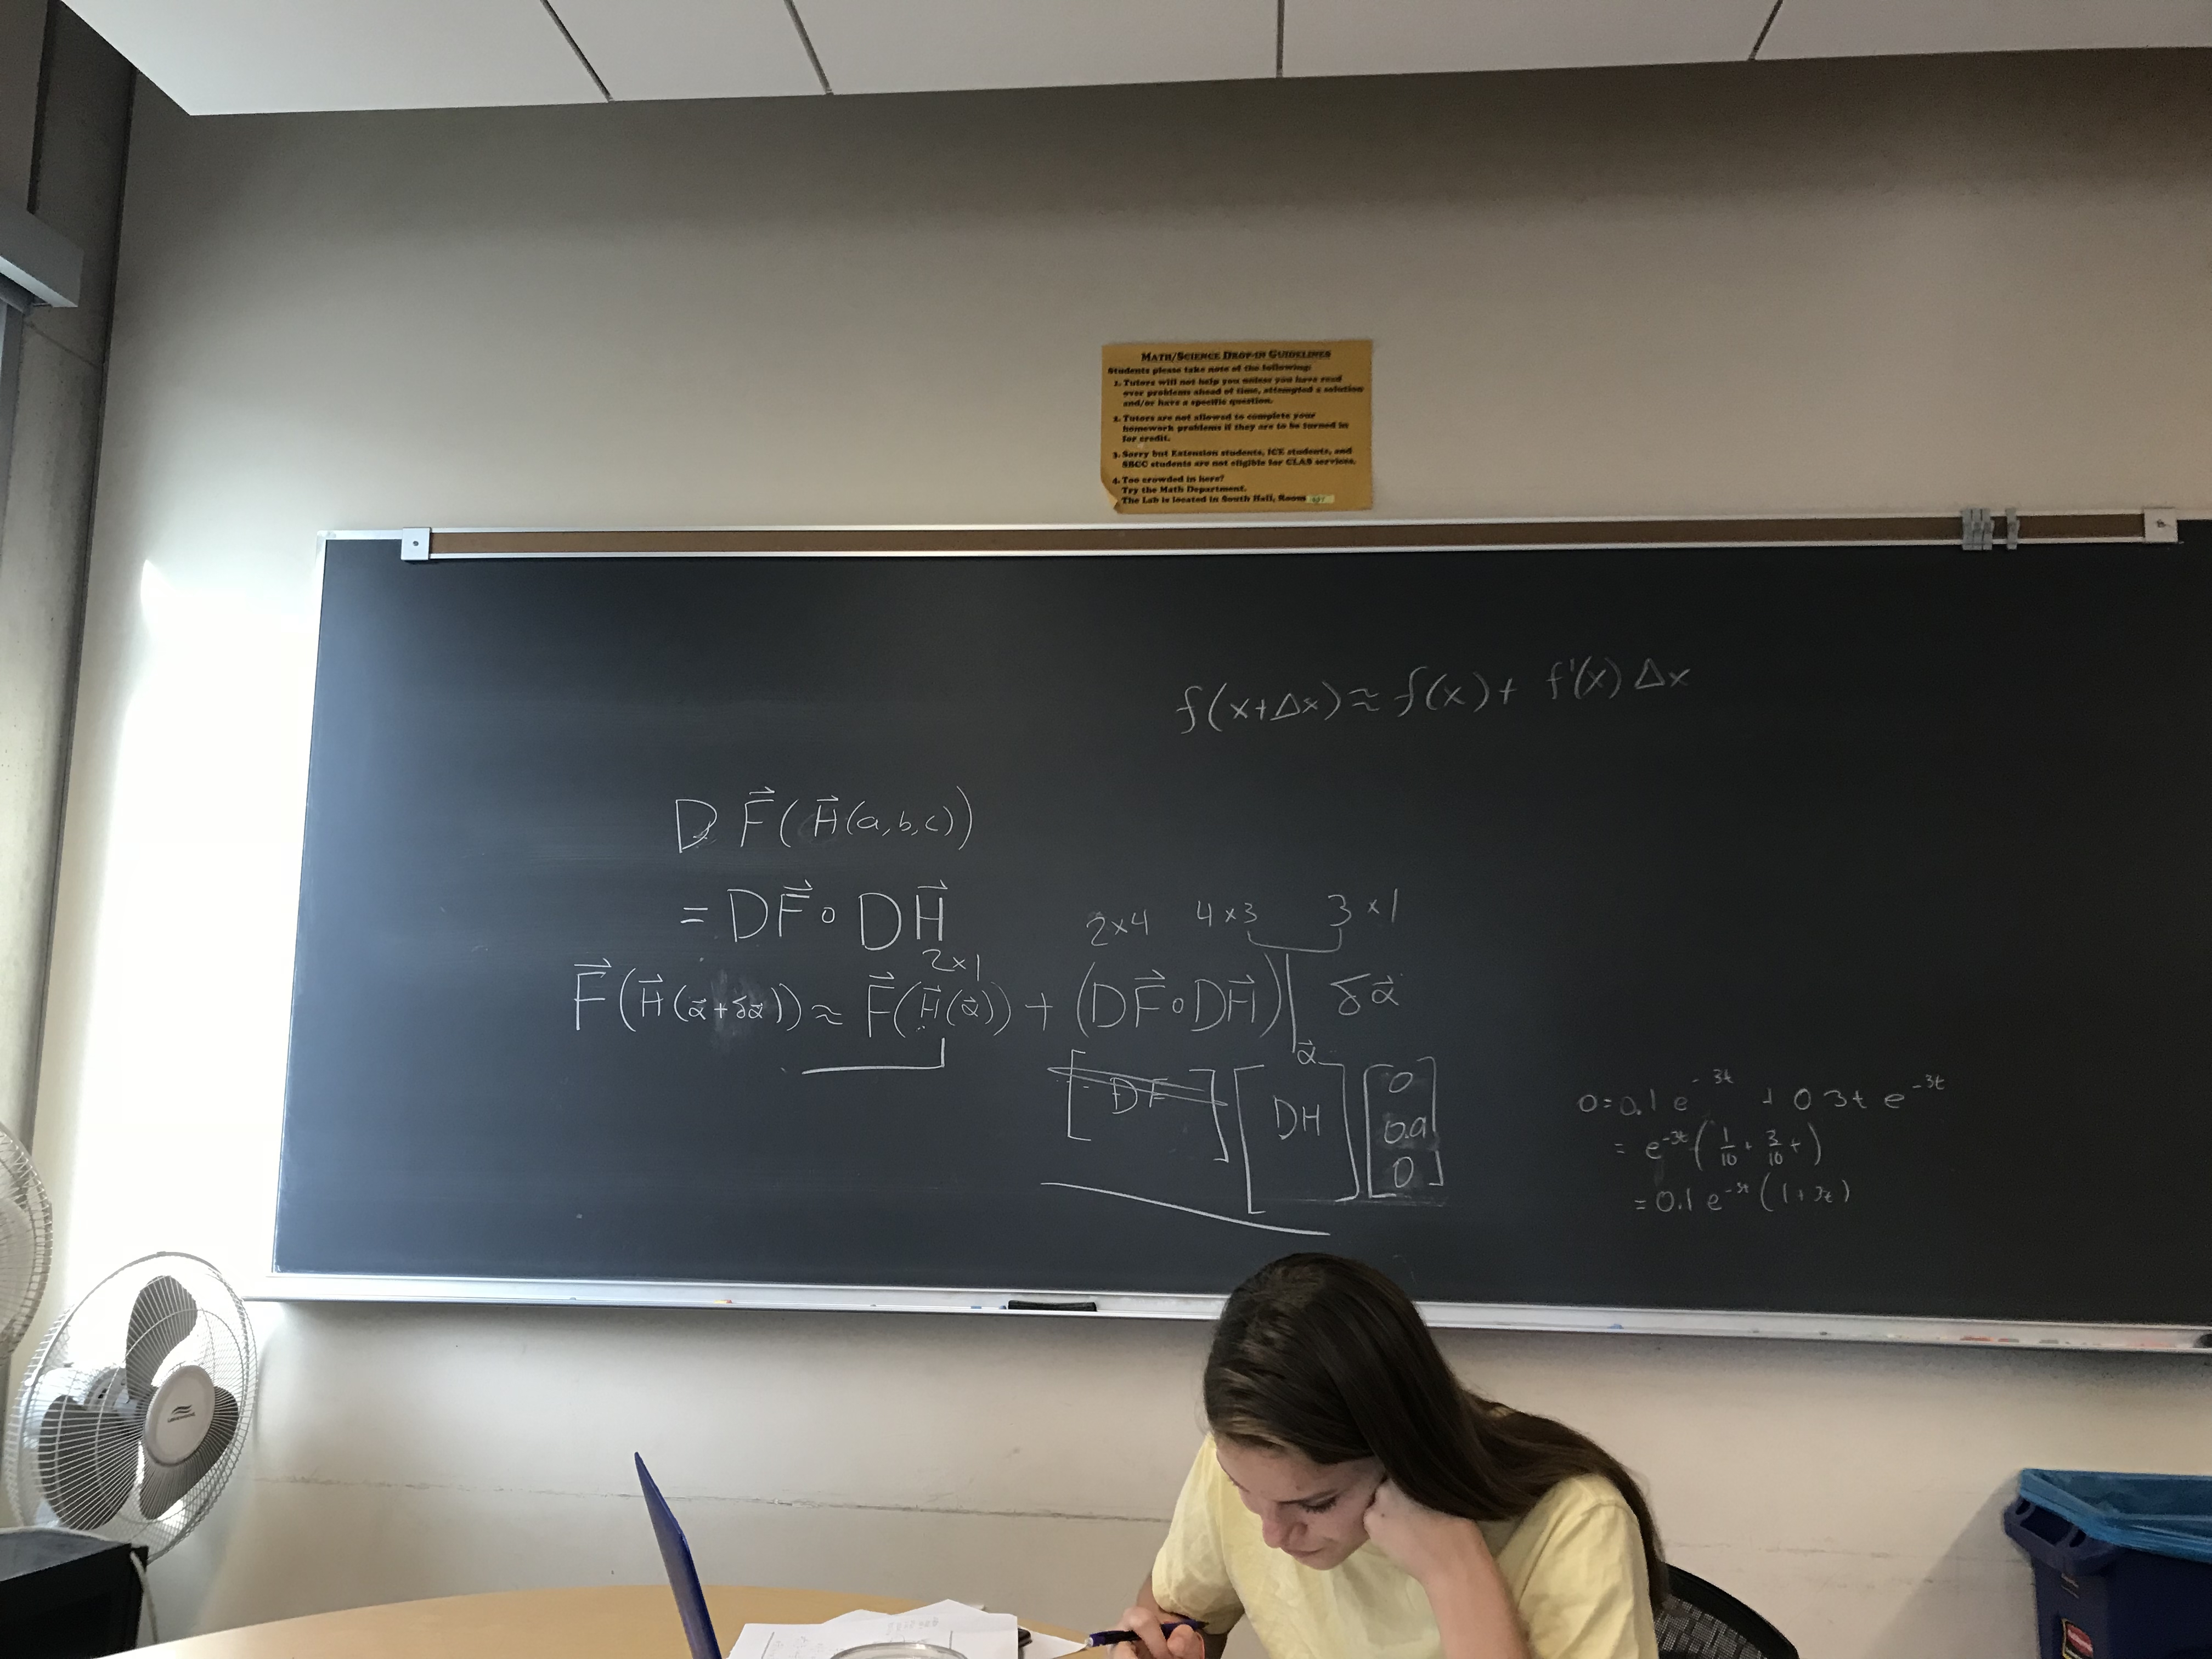 MATH/SCIENCE DROP-IN GUIDELINES
Students please take note of the following:
1. Tutors will not help you unless you have read
over problems ahead of time, attempted a solution
and/or have a specific question.
2. Tutors are not allowed to complete your
homework problems if they are to be turned in
for credit.
3. Sorry but Extension students, ICE students, and
SBCC students are not eligible for CLAS services.
4. Too crowded in here?
Try the Math Department.
The Lab is located in South Hall, Room
f(x+Δx) ≈ f(x) + f'(x) Δx
D F⃗(H⃗(a,b,c))
= DF⃗ ∘ DH⃗
2×1
2×4 4×3 3×1
F⃗(H⃗(α⃗+δα⃗)) ≈ F⃗(H⃗(α⃗)) + (DF⃗∘DH⃗)|α⃗ δα⃗
[DF] [DH] [0 0.a 0]
0=0.1 e^-3t + 0 3t e^-3t
= e^-3t (1/10 + 3/10 t)
= 0.1 e^-3t (1+3t)